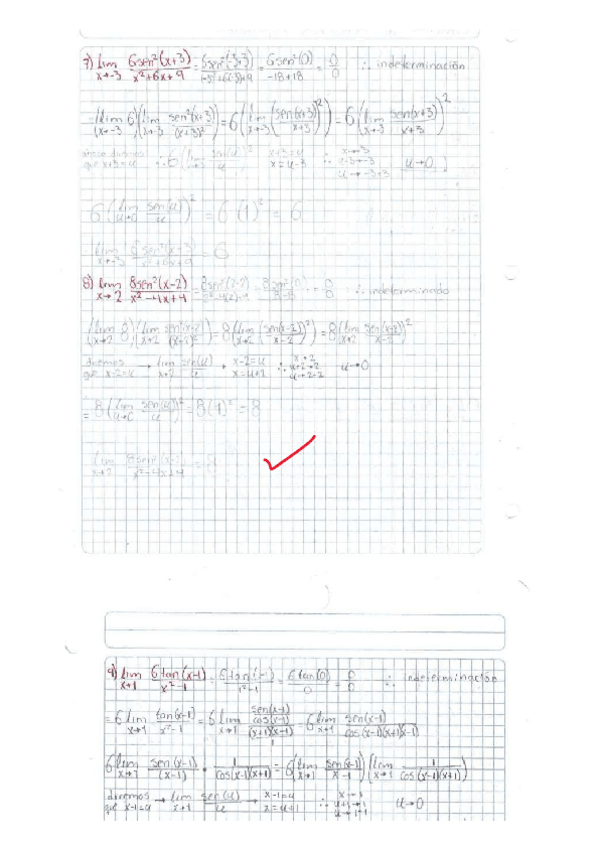 7) lim x→-3 6sen²(x+3)/x²+6x+9 = 6sen²(-3+3)/-3²+6(-3)+9 = 6sen²(0)/-18+18 = 0/0 ∴ indeterminación
=(lim x→-3 6)(lim x→-3 sen²(x+3)/(x+3)²) = 6(lim x→-3 (sen(x+3)/x+3)²) = 6(lim x→-3 sen(x+3)/x+3)²
que x+3=u ∴ 6(lim sen(u)/u)² x+3=u x=u-3 ∴ x→-3 u-3→-3 u→-3+3 u→0
6(lim u→0 sen(u)/u)² = 6(1)² = 6
lim x→-3 6sen²(x+3)/x²+6x+9 = 6
8) lim x→2 8sen²(x-2)/x²-4x+4 = 8sen²(2-2)/2²-4(2)+4 = 8sen²(0)/8-8 = 0/0 ∴ indeterminado
(lim x→2 8)(lim x→2 sen²(x-2)/(x-2)²) = 8(lim x→2 (sen(x-2)/x-2)²) = 8(lim x→2 sen(x-2)/x-2)²
diremos que x-2=u → lim x→2 sen(u)/u → x-2=u x=u+2 ∴ x→2 u+2→2 u→2-2 u→0
= 8(lim u→0 sen(u)/u)² = 8(1)² = 8
lim x→2 8sen²(x-2)/x²-4x+4 = 8
9) lim x→1 6tan(x-1)/x²-1 = 6tan(1-1)/1²-1 = 6tan(0)/0 = 0/0 ∴ indeterminación
= 6 lim x→1 tan(x-1)/x²-1 = 6 lim x→1 sen(x-1)/cos(x-1)/(x+1)(x-1)/1 = 6 lim x→1 sen(x-1)/cos(x-1)(x+1)(x-1)
6(lim x→1 sen(x-1)/(x-1) · 1/cos(x-1)(x+1) = 6(lim x→1 sen(x-1)/x-1)(lim x→1 1/cos(x-1)(x+1))
diremos que x-1=u → lim x→1 sen(u)/u → x-1=u x=u+1 ∴ x→1 u+1→1 u→1-1 u→0